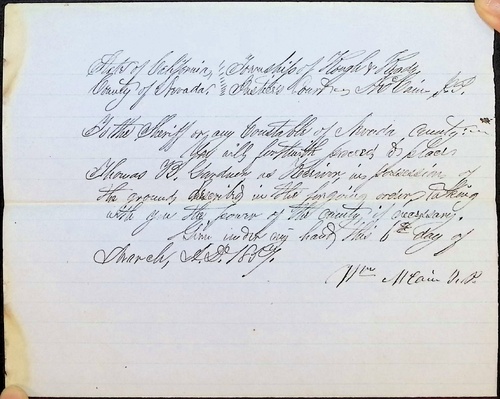 State of California, Township of Rough & Ready
County of Nevada, Justices Court Wm McCain J.P.
To the Sheriff or any Constable of Nevada County
You will forthwith proceed to place
Thomas B. Gardner as Receiver in possession of
the ground described in the forgoing order, taking
with you the power of the county, if necessary.
Given under my hand, this 6th day of
March, A.D. 1857.
Wm McCain J.P.